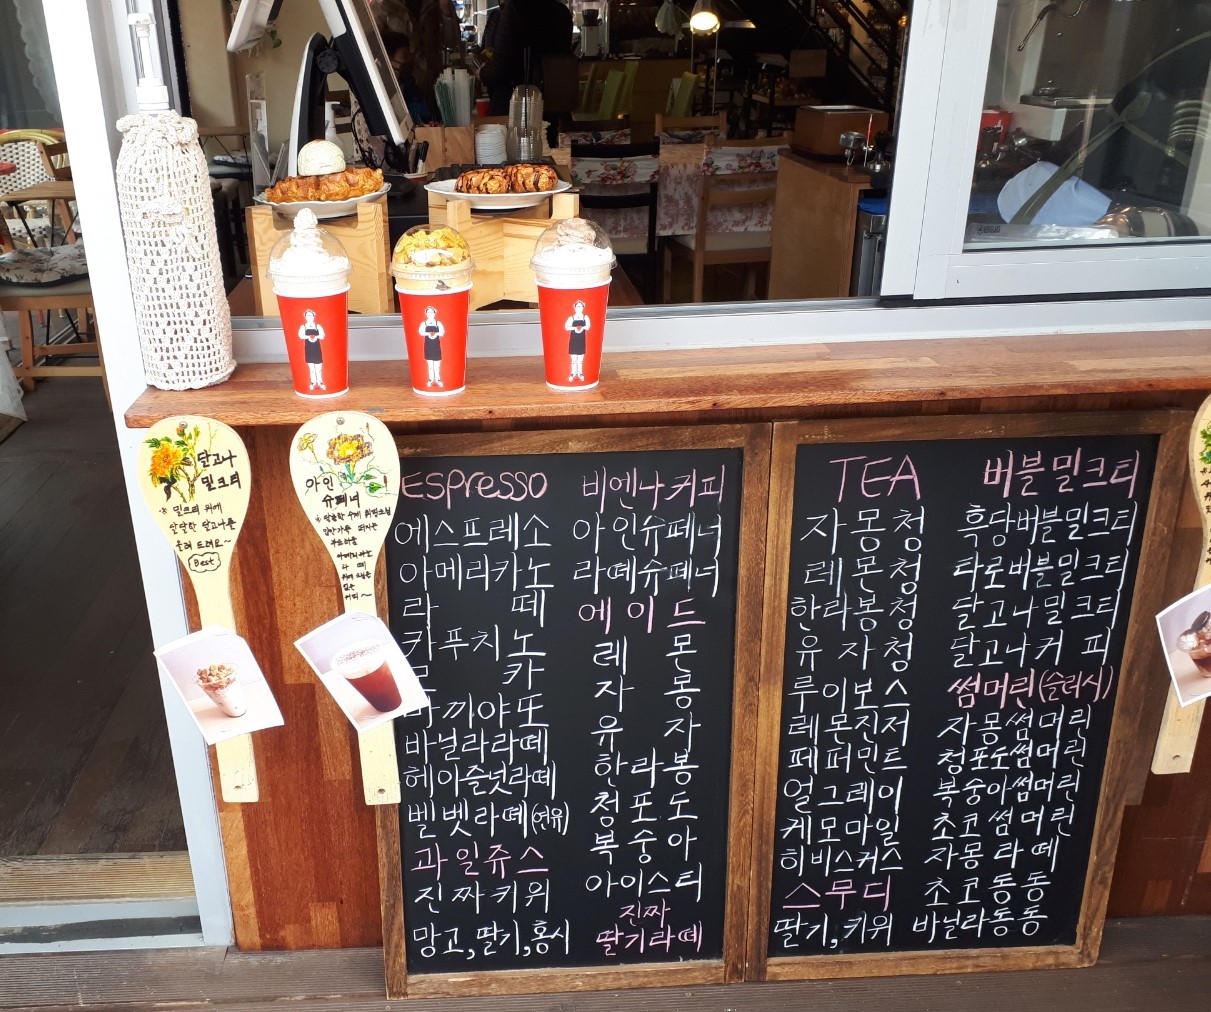 달고나
밀크티
※ 밀크티 위에
달달한 달고나를
올려 드려요~
Best
아인
슈페너
Espresso
에스프레소
아메리카노
라떼
카푸치노
모카
마끼야또
바닐라라떼
헤이즐넛라떼
벨벳라떼(연유)
과일쥬스
진짜키위
망고,딸기,홍시
비엔나커피
아인슈페너
라떼슈페너
에이드
레몬
자몽
유자
한라봉
청포도
복숭아
아이스티
진짜
딸기라떼
TEA
자몽청
레몬청
한라봉청
유자청
루이보스
레몬진저
페퍼민트
얼그레이
케모마일
히비스커스
스무디
딸기,키위
버블밀크티
흑당버블밀크티
타로버블밀크티
달고나밀크티
달고나커피
썸머린(슬러시)
자몽썸머린
청포도썸머린
복숭아썸머린
초코썸머린
자몽라떼
초코동동
바닐라동동